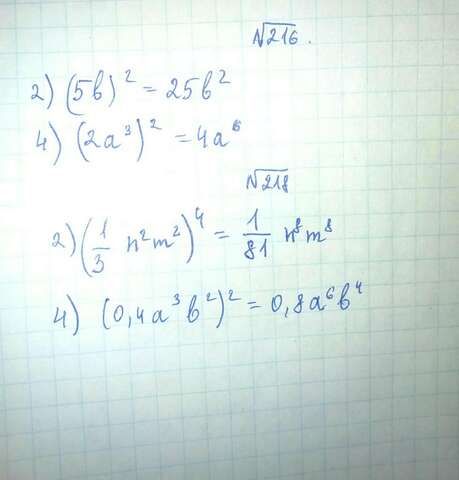 №216.
2) (5b)² = 25b²
4) (2a³)² = 4a⁶
№218
2) (1/3 n²m²)⁴ = 1/81 n⁸m⁸
4) (0,4a³b²)² = 0,8a⁶b⁴